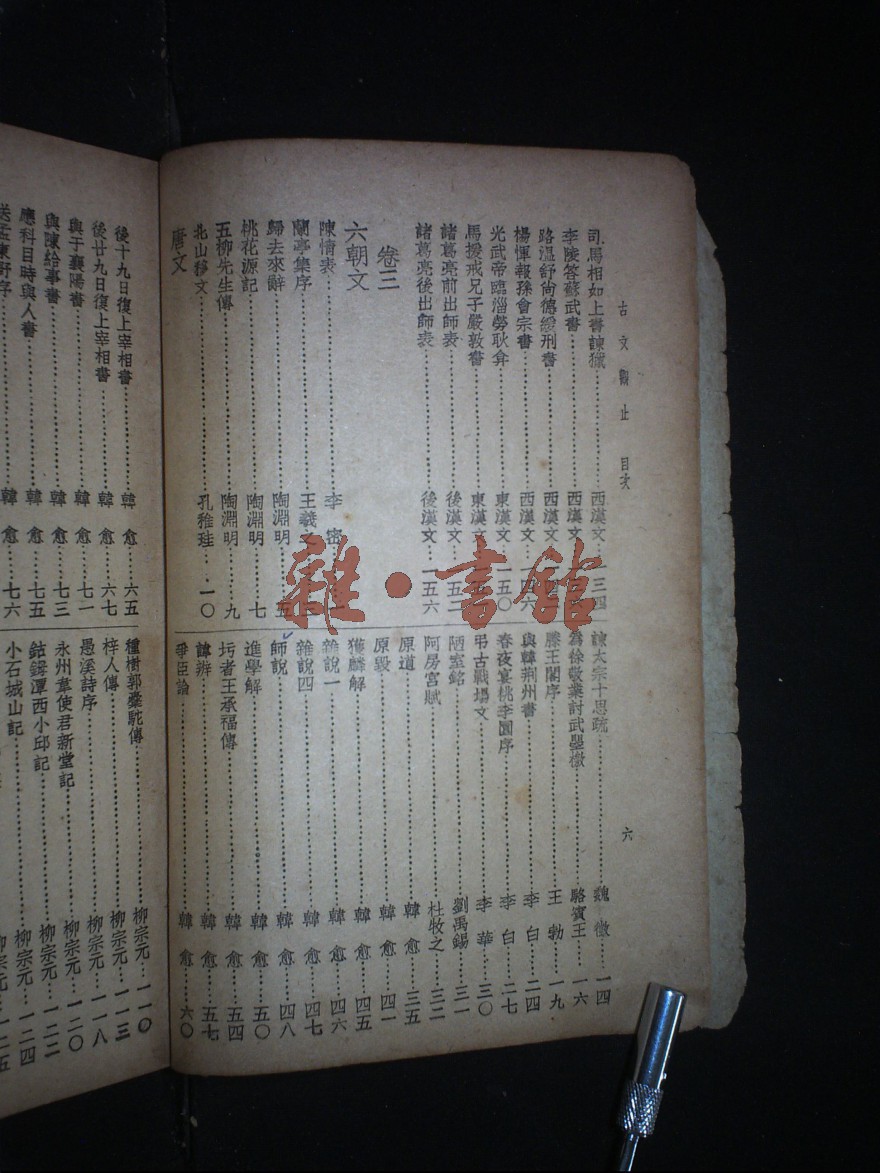 古文觀止 目次
六
司馬相如上書諫獵 西漢文 三四
李陵答蘇武書 西漢文
路溫舒尚德緩刑書 西漢文
楊惲報孫會宗書 西漢文 一四六
光武帝臨淄勞耿弇 東漢文 一五〇
馬援戒兄子嚴敦書 東漢文
諸葛亮前出師表 後漢文 一五二
諸葛亮後出師表 後漢文 一五六
卷三
六朝文
陳情表 李密
蘭亭集序 王羲之
歸去來辭 陶淵明 五
桃花源記 陶淵明 七
五柳先生傳 陶淵明 九
北山移文 孔稚珪 一〇
唐文
諫太宗十思疏 魏徵 一四
為徐敬業討武曌檄 駱賓王 一六
滕王閣序 王勃 一九
與韓荆州書 李白 二四
春夜宴桃李園序 李白 二七
弔古戰場文 李華 三〇
陋室銘 劉禹錫 三一
阿房宮賦 杜牧之 三二
原道 韓愈 三五
原毀 韓愈 四一
獲麟解 韓愈 四五
雜說一 韓愈 四六
雜說四 韓愈 四七
師說 韓愈 四八
進學解 韓愈 五〇
圬者王承福傳 韓愈 五四
諱辯 韓愈 五七
爭臣論 韓愈 六〇
後十九日復上宰相書 韓愈 六五
後廿九日復上宰相書 韓愈 六七
與于襄陽書 韓愈 七一
與陳給事書 韓愈 七三
應科目時與人書 韓愈 七五
送孟東野序 韓愈 七六
種樹郭橐駝傳 柳宗元 一一〇
梓人傳 柳宗元 一一三
愚溪詩序 柳宗元 一一八
永州韋使君新堂記 柳宗元 一二〇
鈷鉧潭西小邱記 柳宗元 一二二
小石城山記 柳宗元 一二四
柳宗元 一二五
雜·書館